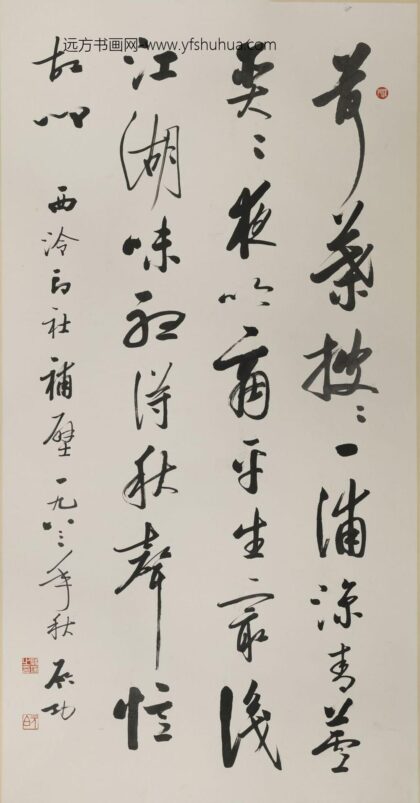 远方书画网-www.yfshuhua.com
荷葉披〻一浦涼青蘆
奕〻夜吟商平生最識
江湖味聽得秋聲憶
故鄉 西泠印社補壁一九八三年秋 启功